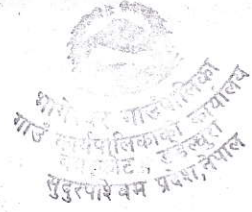 भागेश्वर गाउँपालिका
गाउँ कार्यपालिकाको कार्यालय
डडेल्धुरा
सुदुरपश्चिम प्रदेश, नेपाल